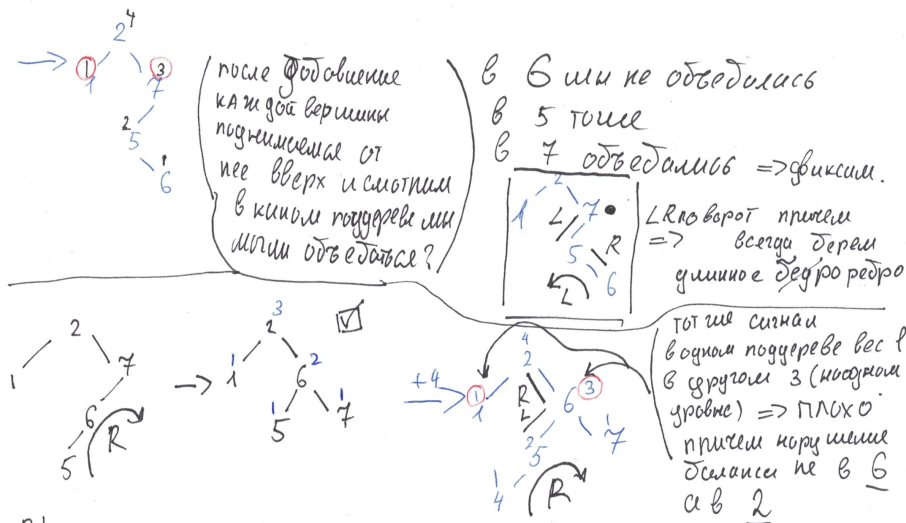 2 4
1 1 3 7
2 5
1 6
после добавление
каждой вершины
поднимаемся от
нее вверх и смотрим
в каком поддереве мы
могли объебаться?
в 6 мы не объебались
в 5 тоже
в 7 объебались => движим.
2
1 L 7
5 R
L 6
LR поворот причем
=> всегда берем
длинное бедро ребро
2
1 7
6
5 R
3
2
1 1 6 2
1 5 1 7
+4
4
2
1 1 R L 6 3
2 5 1 7
1 4 R
тот же сигнал
в одном поддереве вес 1
в другом 3 (на одном
уровне) => плохо
причем нарушение
баланса не в 6
а в 2